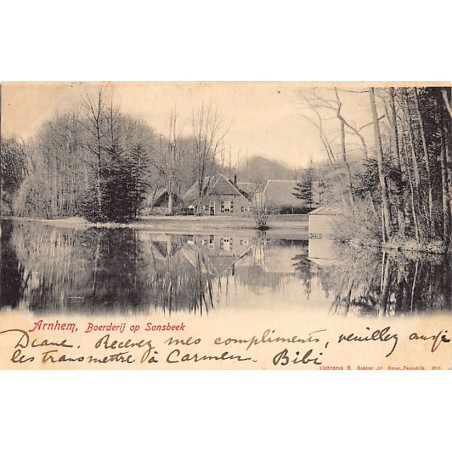 Arnhem, Boerderij op Sonsbeek
Diane. Recevez mes compliments, veuillez aussi
les transmettre à Carmen. Bibi
Lichtdruk S. Bakker Jz. Koog-Zaandijk.